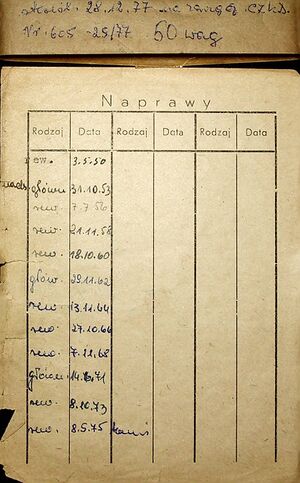 28.12.77 na
Nr. 605-25/77 50 wag
Naprawy
Rodzaj Data Rodzaj Data Rodzaj Data
rew. 3.5.50
główn 31.10.53
rew. 7.7.56
rew. 21.11.58
rew. 18.10.60
głów. 29.11.62
rew. 13.11.64
rew. 27.10.66
rew. 7.11.68
główn. 14.6.71
rew. 8.10.73
rew. 8.5.75